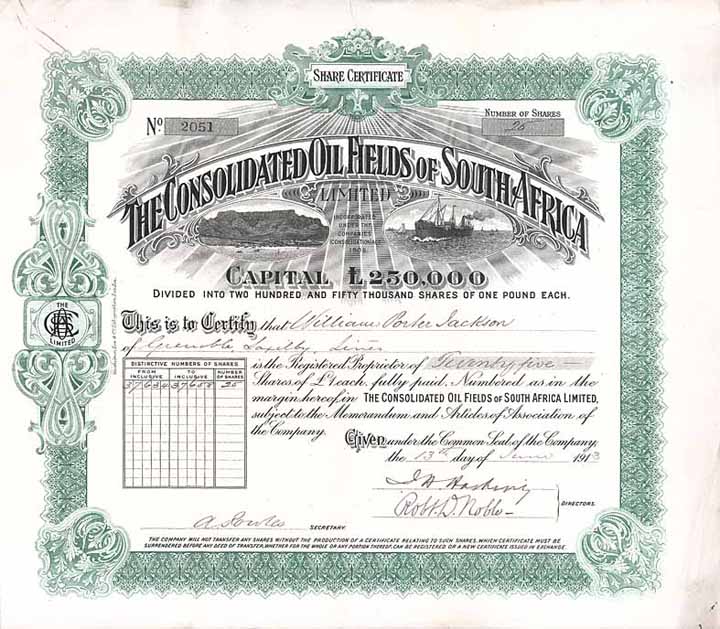 SHARE CERTIFICATE
No. 2051
NUMBER OF SHARES
25
THE CONSOLIDATED OIL FIELDS OF SOUTH AFRICA
LIMITED
INCORPORATED
UNDER THE
COMPANIES
CONSOLIDATION ACT
1908.
CAPITAL £250,000
DIVIDED INTO TWO HUNDRED AND FIFTY THOUSAND SHARES OF ONE POUND EACH.
This is to Certify that William Porter Jackson
of
DISTINCTIVE NUMBERS OF SHARES
FROM INCLUSIVE
TO INCLUSIVE
NUMBER OF SHARES
37634 37658 25
is the Registered Proprietor of Twenty five
Shares of £1 each, fully paid, Numbered as in the
margin hereof, in THE CONSOLIDATED OIL FIELDS OF SOUTH AFRICA LIMITED,
subject to the Memorandum and Articles of Association of
the Company.
Given under the Common Seal of the Company,
the 13th day of June 1913
Robt. D. Noble
DIRECTORS.
SECRETARY.
THE COMPANY WILL NOT TRANSFER ANY SHARES WITHOUT THE PRODUCTION OF A CERTIFICATE RELATING TO SUCH SHARES, WHICH CERTIFICATE MUST BE
SURRENDERED BEFORE ANY DEED OF TRANSFER, WHETHER FOR THE WHOLE OR ANY PORTION THEREOF, CAN BE REGISTERED OR A NEW CERTIFICATE ISSUED IN EXCHANGE.
THE
LIMITED